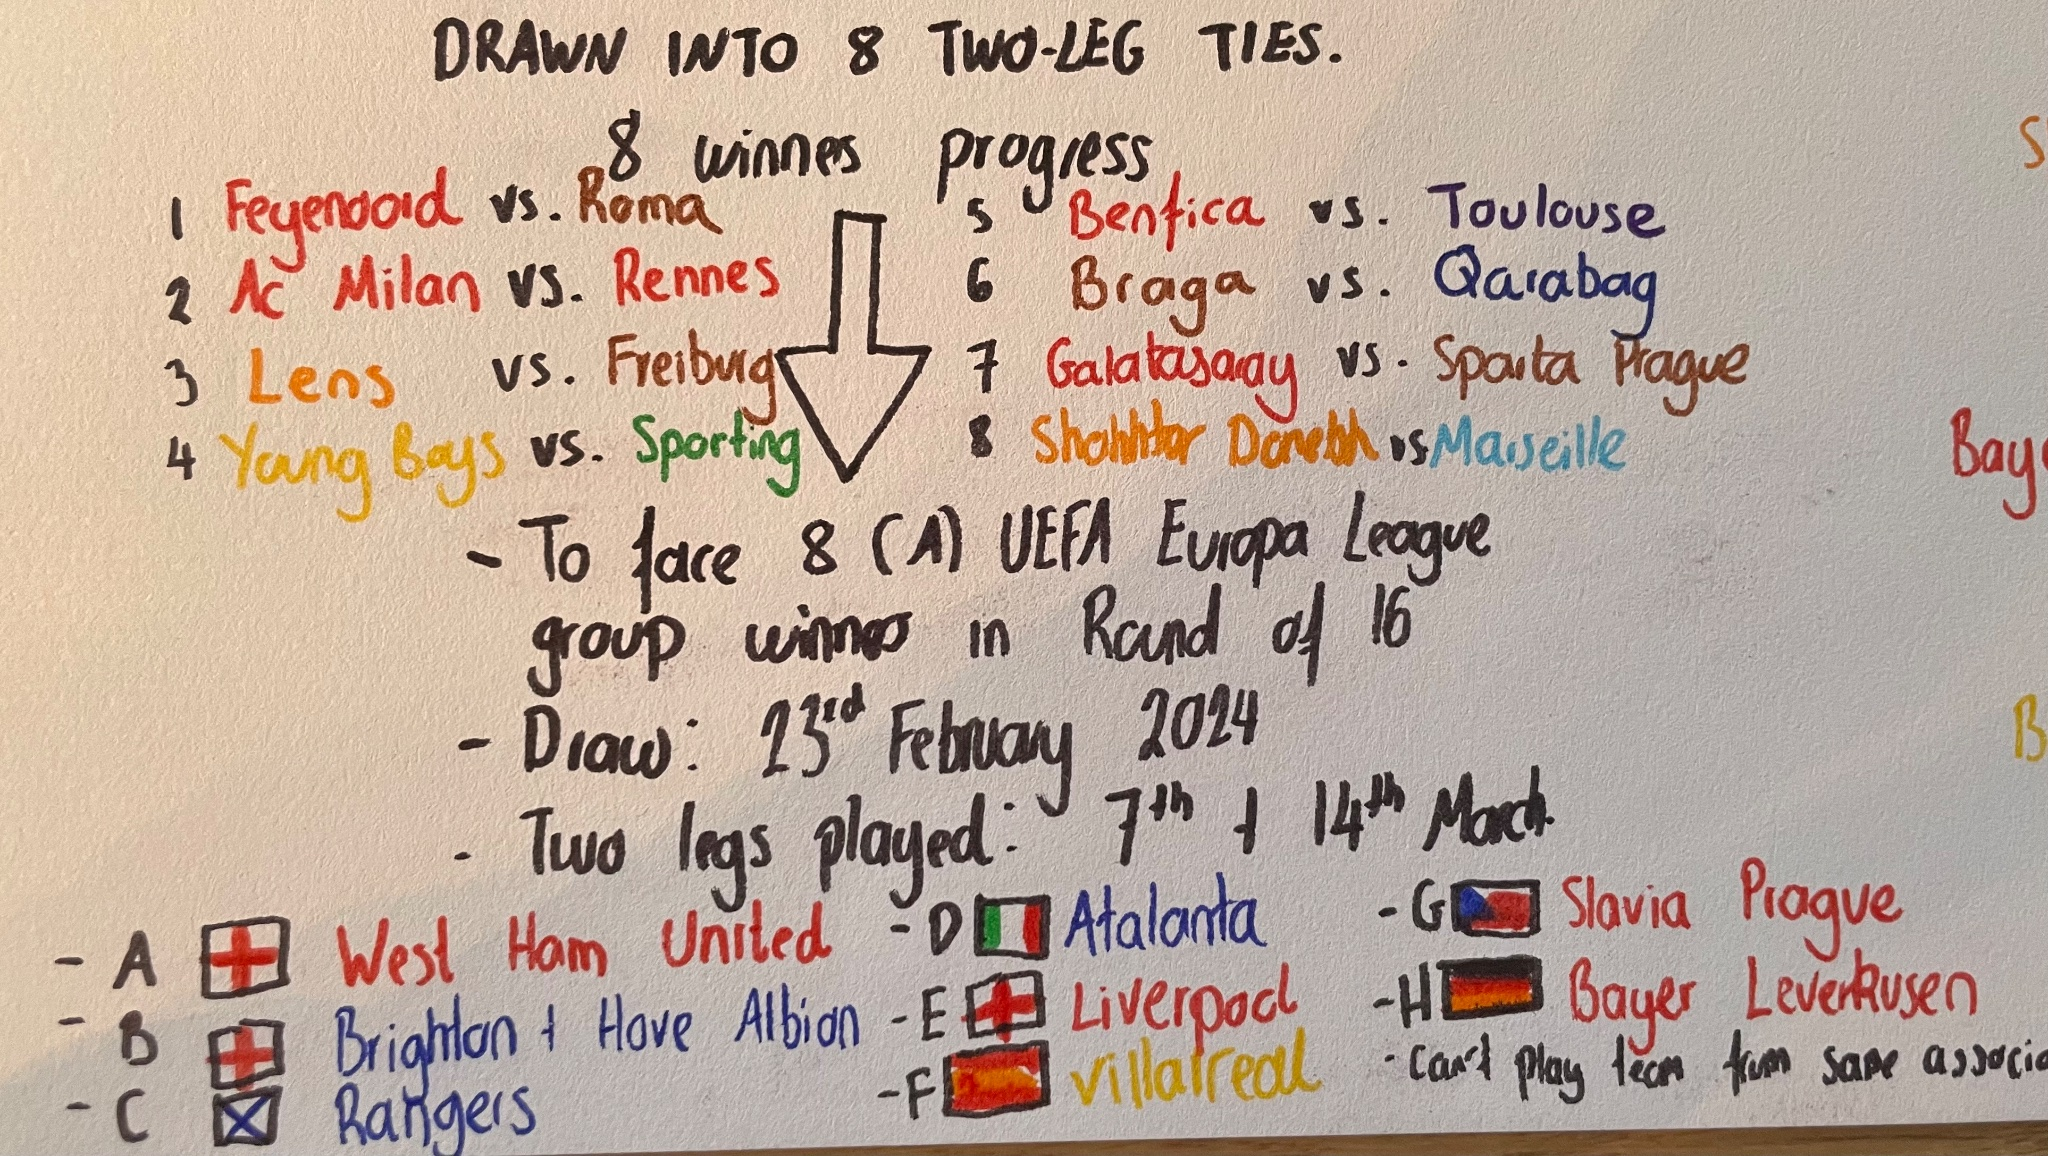 DRAWN INTO 8 TWO-LEG TIES.
8 winnes progress
1 Feyenoord vs. Roma
2 Ac Milan vs. Rennes
3 Lens vs. Freiburg
4 Young Boys vs. Sporting
5 Benfica vs. Toulouse
6 Braga vs. Qarabag
7 Galatasaray vs. Sparta Prague
8 Shakhtar Donetsk vs Marseille
- To face 8 (A) UEFA Europa League
group winners in Round of 16
- Draw: 23rd February 2024
- Two legs played: 7th + 14th March.
- A West Ham United
- B Brighton + Hove Albion
- C Rangers
- D Atalanta
- E Liverpool
- F Villarreal
- G Slavia Prague
- H Bayer Leverkusen
- Can't play team from same associa
S
Baye
B